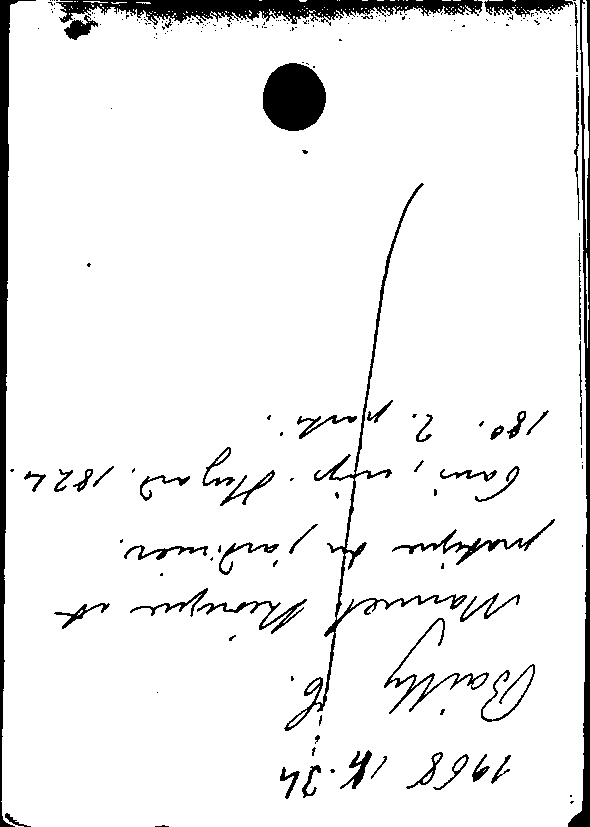 1968 K. 34
Bailly C.
Manuel théorique et
pratique du jardinier.
Paris, imp. Huzard, 1824.
18°. 2. part.